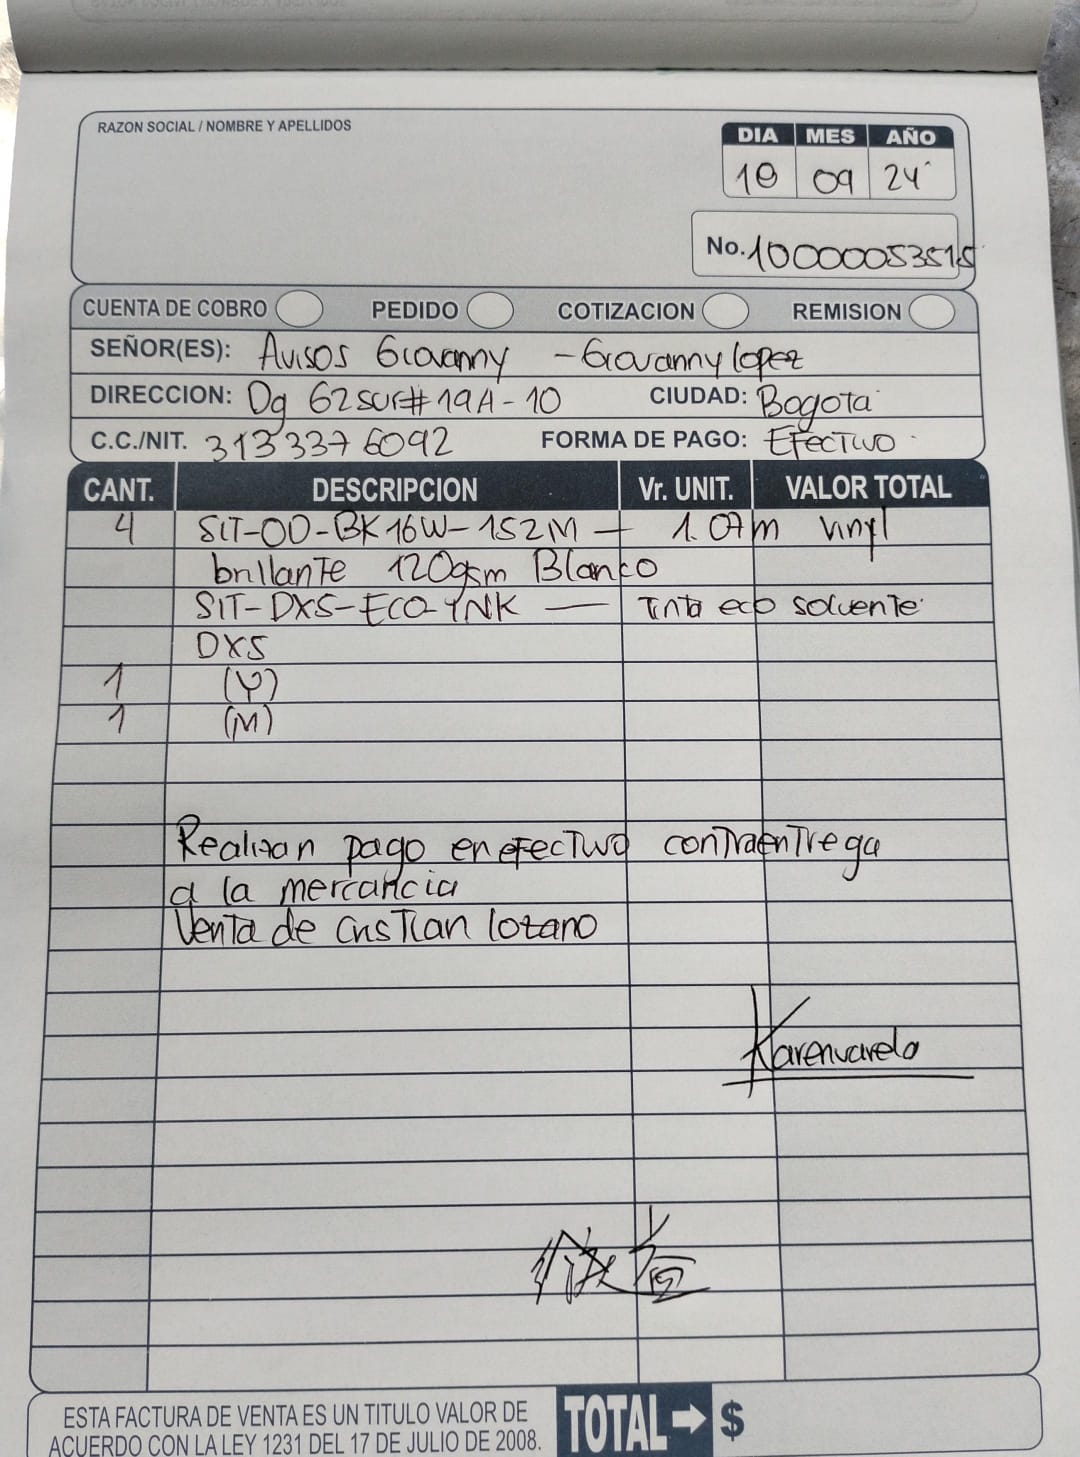 RAZON SOCIAL / NOMBRE Y APELLIDOS
DIA MES AÑO
10 09 24
No. 10000053515
CUENTA DE COBRO PEDIDO COTIZACION REMISION
SEÑOR(ES): Avisos Giovanny - Giovanny lopez
DIRECCION: Dg 62sur# 19A-10 CIUDAD: Bogota
C.C./NIT. 313 337 6092 FORMA DE PAGO: EFECTIVO
CANT. DESCRIPCION Vr. UNIT. VALOR TOTAL
4 SIT-OD-BK16W-152M — 1.07m vinyl
brillante 120gsm Blanco
SIT-DX5-ECO-INK — Tinta eco solvente
DX5
1 (Y)
1 (M)
Realizan pago en efectivo contraentrega
a la mercancia
Venta de Cristian lozano
Karenvarela
ESTA FACTURA DE VENTA ES UN TITULO VALOR DE
ACUERDO CON LA LEY 1231 DEL 17 DE JULIO DE 2008.
TOTAL $